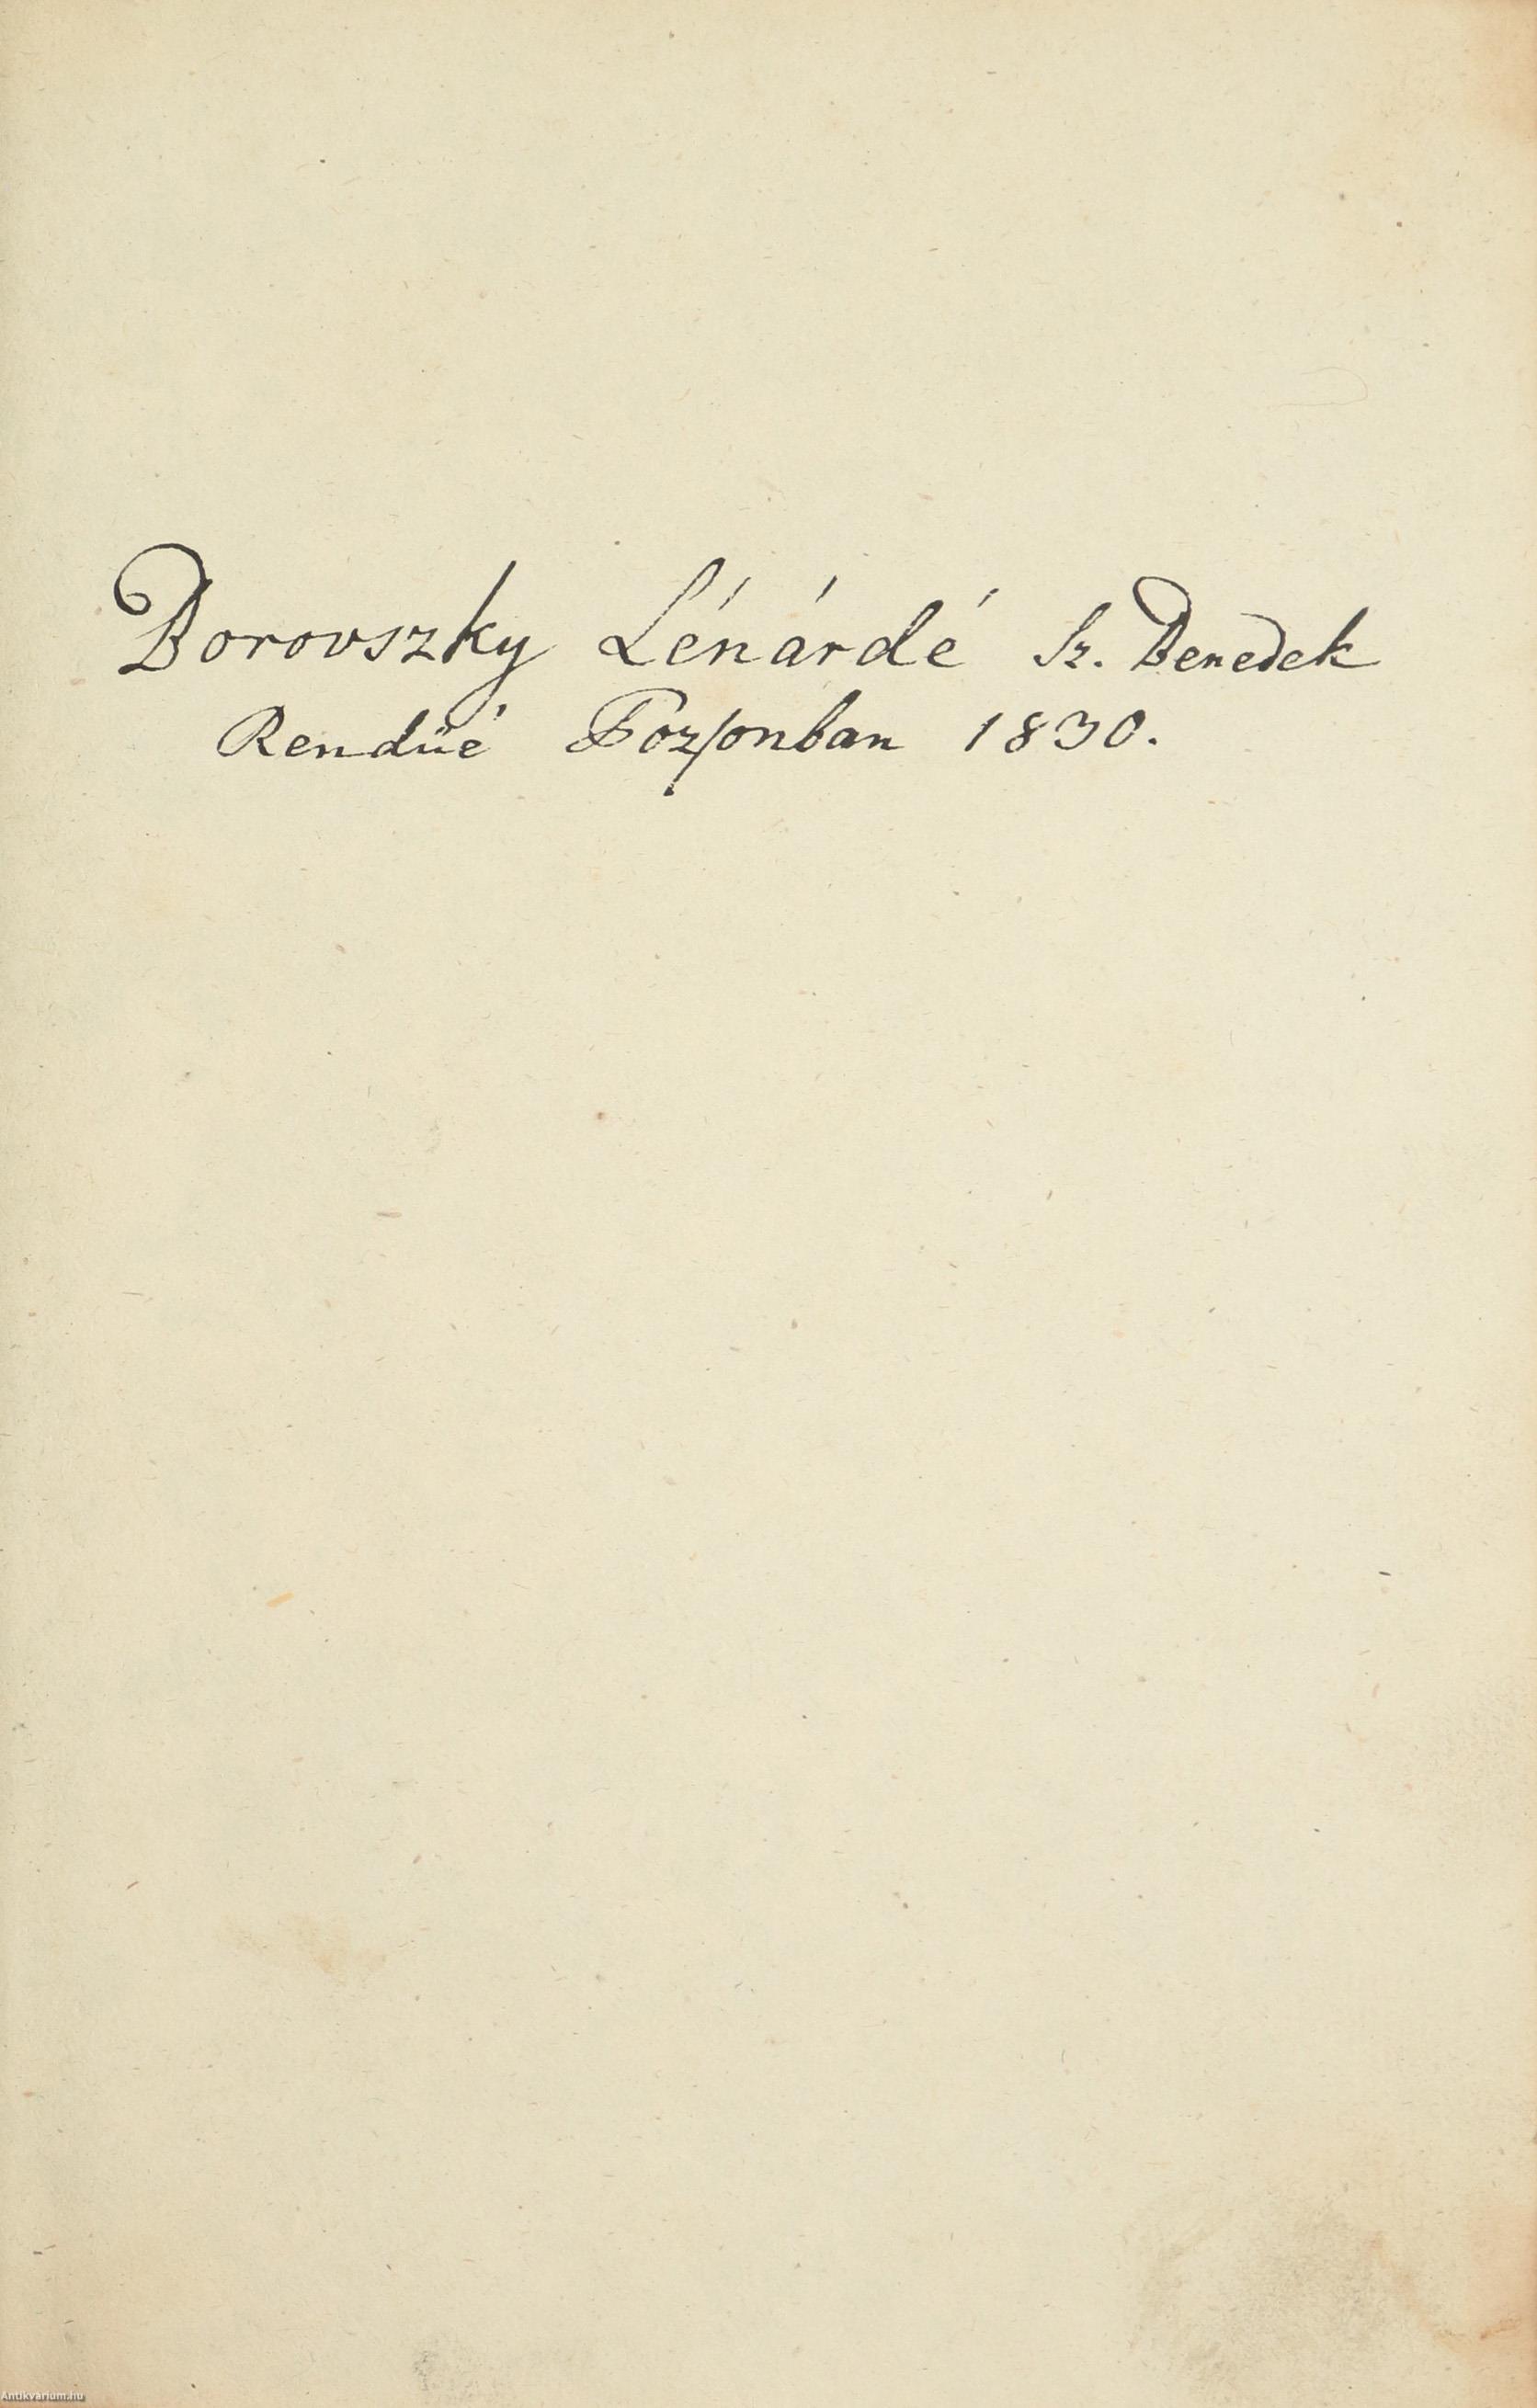 Borovszky Lénárdé Sz. Benedek
Rendüé Pozsonban 1830.
Antikvarium.hu